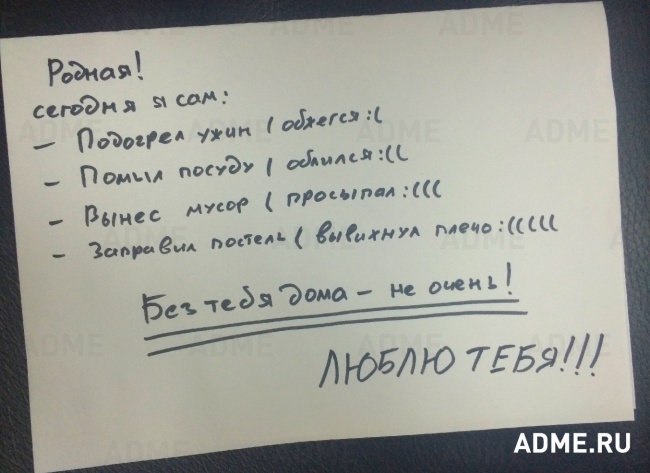 Родная!
сегодня я сам:
- Подогрел ужин (обжегся:(
- Помыл посуду (облился:((
- Вынес мусор (просыпал:(((
- Заправил постель (вывихнул плечо:(((((
Без тебя дома - не очень!
ЛЮБЛЮ ТЕБЯ!!!
ADME.RU